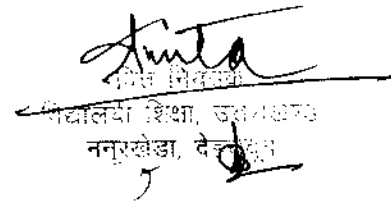 Anita
विद्यालयी शिक्षा, उत्तराखण्ड
ननूरखेडा, देहरादून